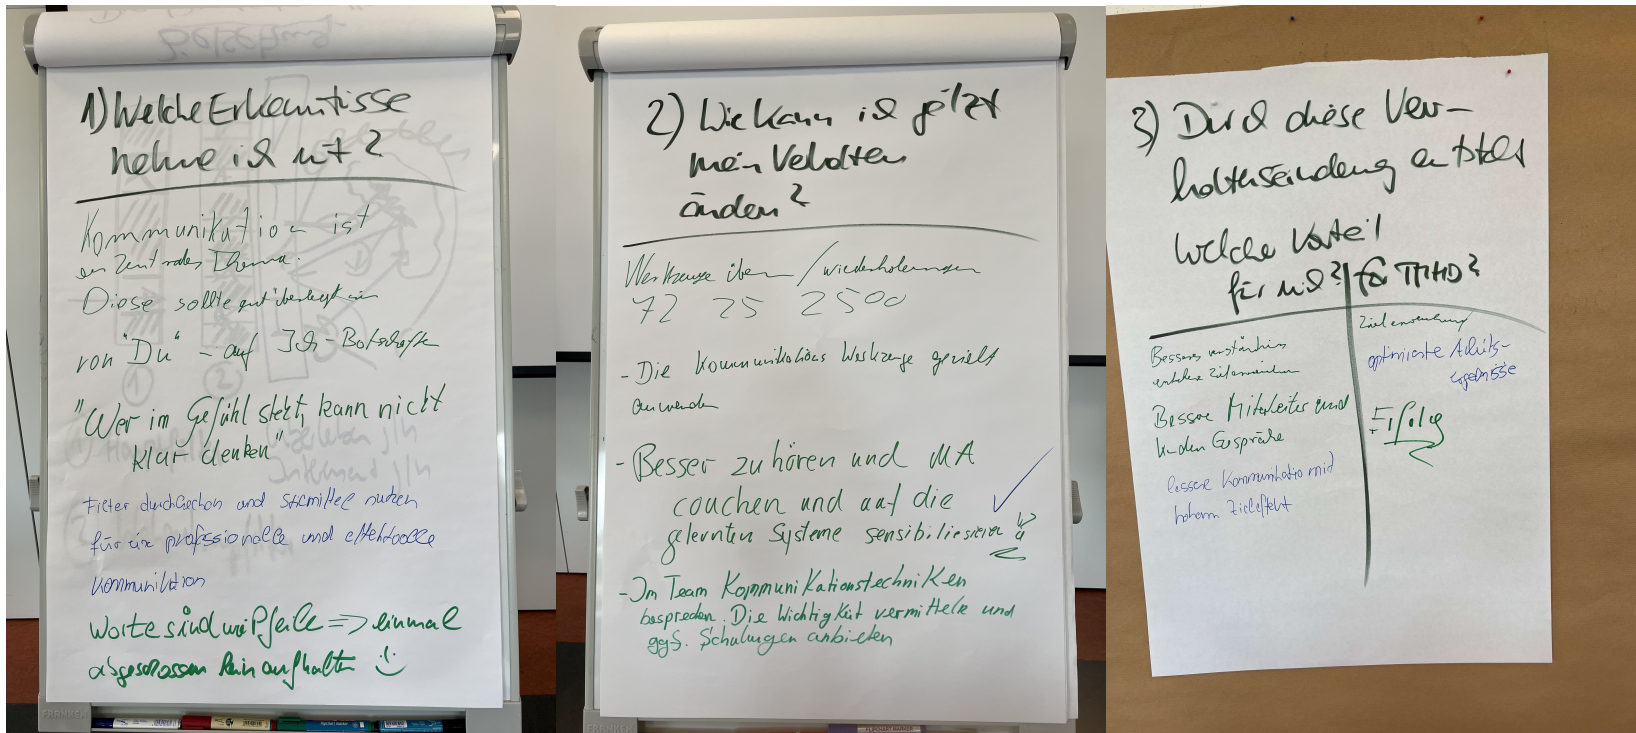 1) Welche Erkenntisse
nehme ich mit?
Kommunikation ist
ein zentrales Thema.
Diese sollte gut überlegt sein
von "Du" - auf Ich-Botschaften
"Wer im Gefühl steht, kann nicht
klar denken"
Filter durchgehen und nutzen
für eine professionelle und effektvolle
Kommunikation
Worte sind wie Pfeile => einmal
abgeschossen kein aufhalten
FRANKEN
2) Wie kann ich jetzt
mein Verhalten
ändern?
Werkzeuge üben / wiederholungen
72 25 2500
- Die Kommunikations Werkzeuge gezielt
anwenden
- Besser zuhören und MA
couchen und auf die
gelernten Systeme sensibiliesieren
- Im Team Kommunikationstechniken
besprechen. Die Wichtigkeit vermitteln und
ggfs. Schulungen anbieten
FRANKEN
3) Durch diese Ver-
haltensänderung entsteht
welche Vorteil
für mich? für TMHD?
Besseres verständnis
Bessere Mitarbeiter und
Kunden Gespräche
bessere Kommunikation mit
hohem Zieleffekt
Zielerreichung
optimierte Arbeits-
ergebnisse
Erfolg